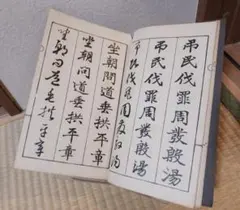 弔民伐罪周發殷湯
弔民伐罪周發殷湯
弔民伐罪周發殷湯
坐朝問道垂拱平章
坐朝問道垂拱平章
坐朝問道垂拱平章